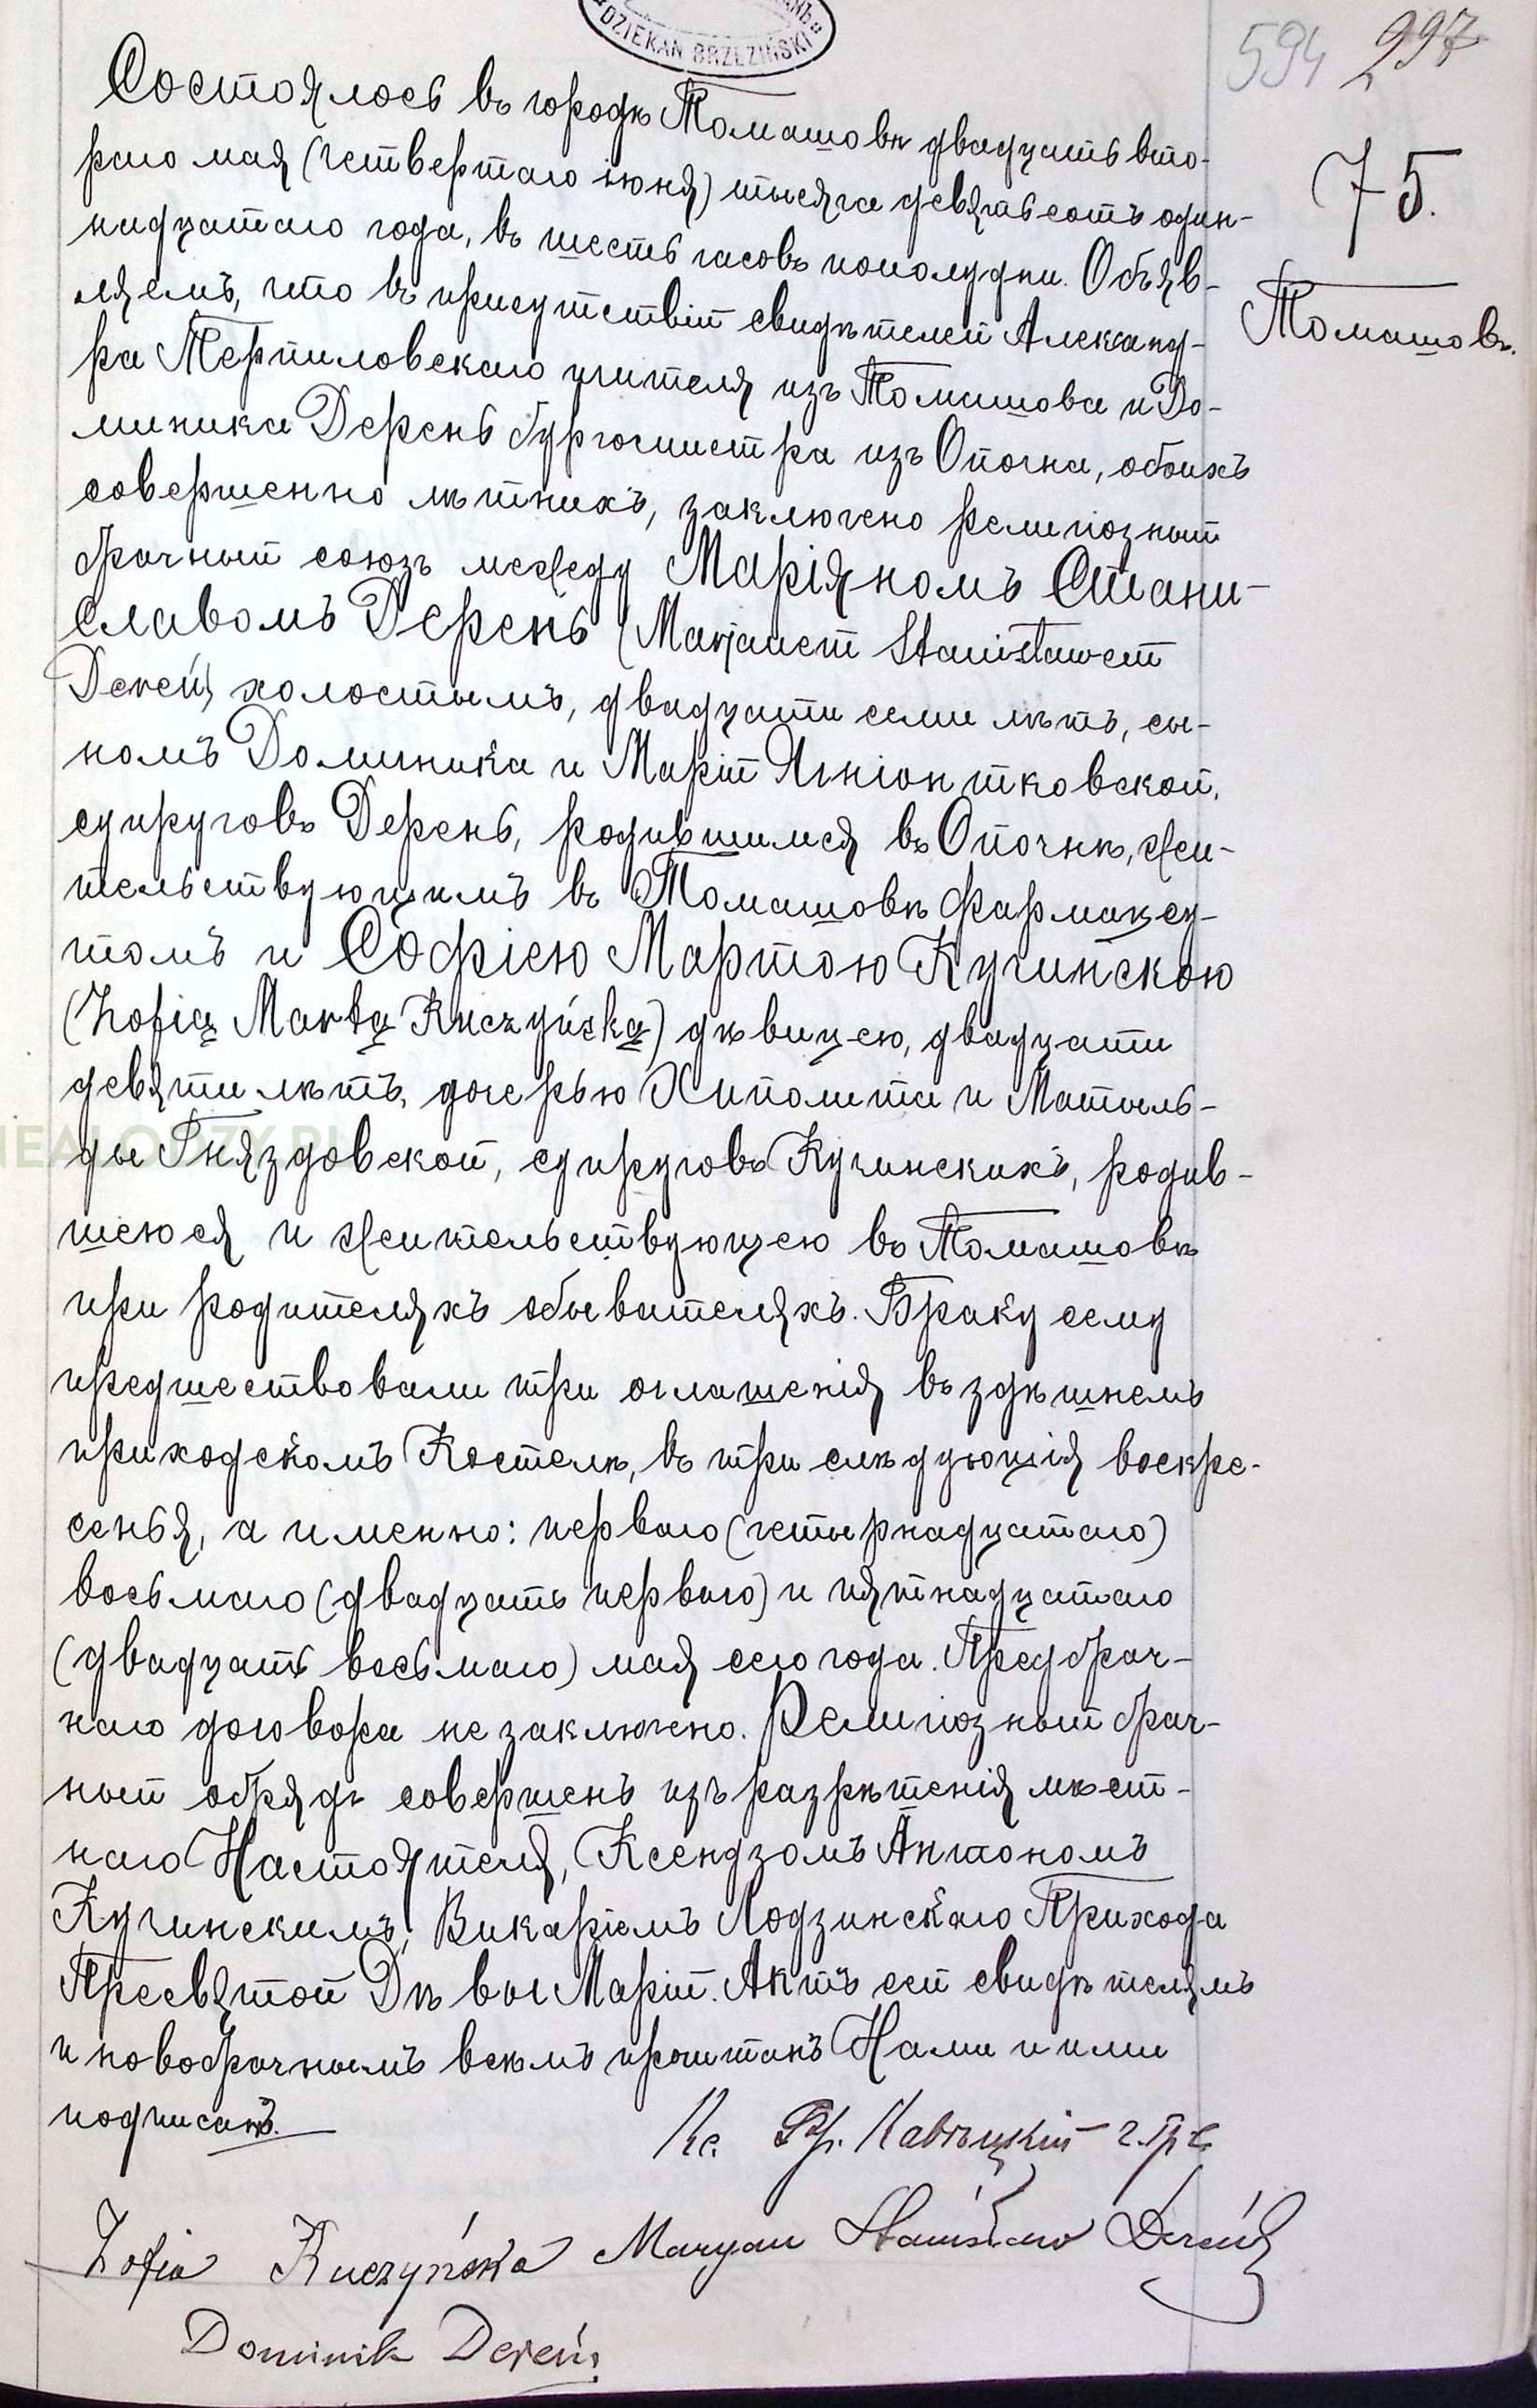 DZIEKAN BRZEZIŃSKI
594 297
75.
Томашовъ.
Состоялось въ городѣ Томашовѣ двадцать вто-
раго мая (четвертаго іюня) тысяча девятьсотъ один-
надцатаго года, въ шесть часовъ пополудни. Объяв-
ляемъ, что въ присутствіи свидѣтелей Александ-
ра Терпиловскаго учителя изъ Томашова и До-
миника Дерень бургомистра изъ Опочна, обоихъ
совершеннолѣтнихъ, заключено религіозный
брачный союзъ между Маріяномъ Стани-
славомъ Дерень (Marjanem Stanisławem
Dereń) холостымъ, двадцати семи лѣтъ, сы-
номъ Доминика и Маріи Ягніонтковской,
супруговъ Дерень, родившимся въ Опочнѣ, жи-
тельствующимъ въ Томашовѣ фармацеу-
томъ и Софіею Мартою Кучинскою
(Zofią Martą Kuczyńską) дѣвицею, двадцати
девяти лѣтъ, дочерью Хиполита и Матыль-
ды Гняздовской, супруговъ Кучинскихъ, родив-
шеюся и жительствующею въ Томашовѣ
при родителяхъ обывателяхъ. Браку сему
предшествовали три оглашенія въ здѣшнемъ
приходскомъ Костелѣ, въ три слѣдующія воскре-
сенья, а именно: перваго (четырнадцатаго)
восьмаго (двадцать перваго) и пятнадцатаго
(двадцать восьмаго) мая сего года. Предбрач-
наго договора не заключено. Религіозный брач-
ный обрядъ совершенъ изъ разрѣшенія мѣст-
наго Настоятеля, Ксендзомъ Антономъ
Кучинскимъ, Викаріемъ Лодзинскаго Прихода
Пресвятой Дѣвы Маріи. Актъ сей свидѣтелямъ
и новобрачнымъ всѣмъ прочитанъ Нами и ими
подписанъ.
Кс.
Zofia Kuczyńska Maryan Stanisław Dereń
Dominik Dereń